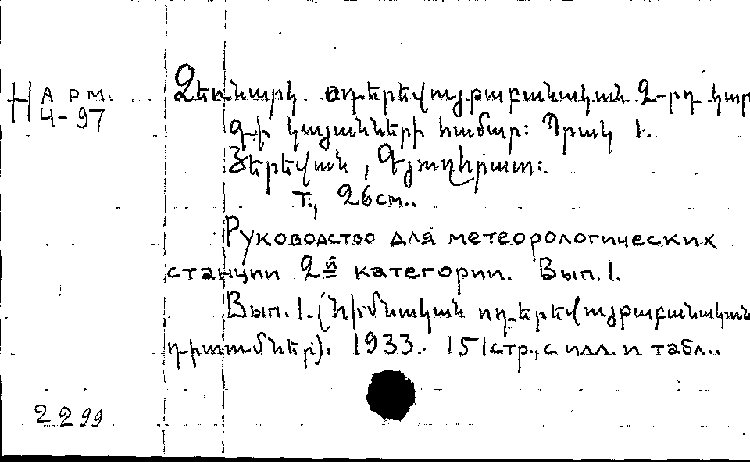 Арм. Ձեռնարկ օդերևութաբանական 2-րդ կար
4-97
գի կայանների համար: Պրակ 1.
Յերևան, Գյուղհրատ:
Т., 26см..
Руководство для метеорологических
станции 2й категории. Вып.1.
Вып.1. (Հիմնական օդերևութաբանական
դիտումներ). 1933. 151стр., с илл. и табл..
2299